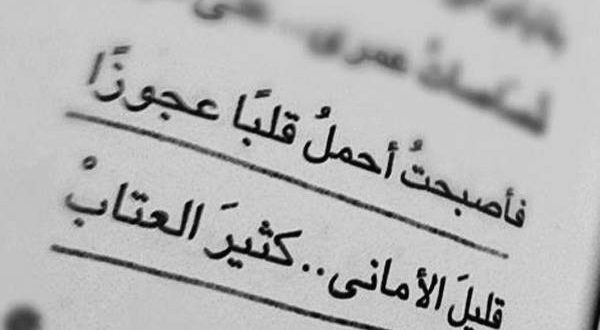 عمرى.. على
فأصبحتُ أحملُ قلبًا عجوزًا
قليلَ الأمانى..كثيرَ العتابْ